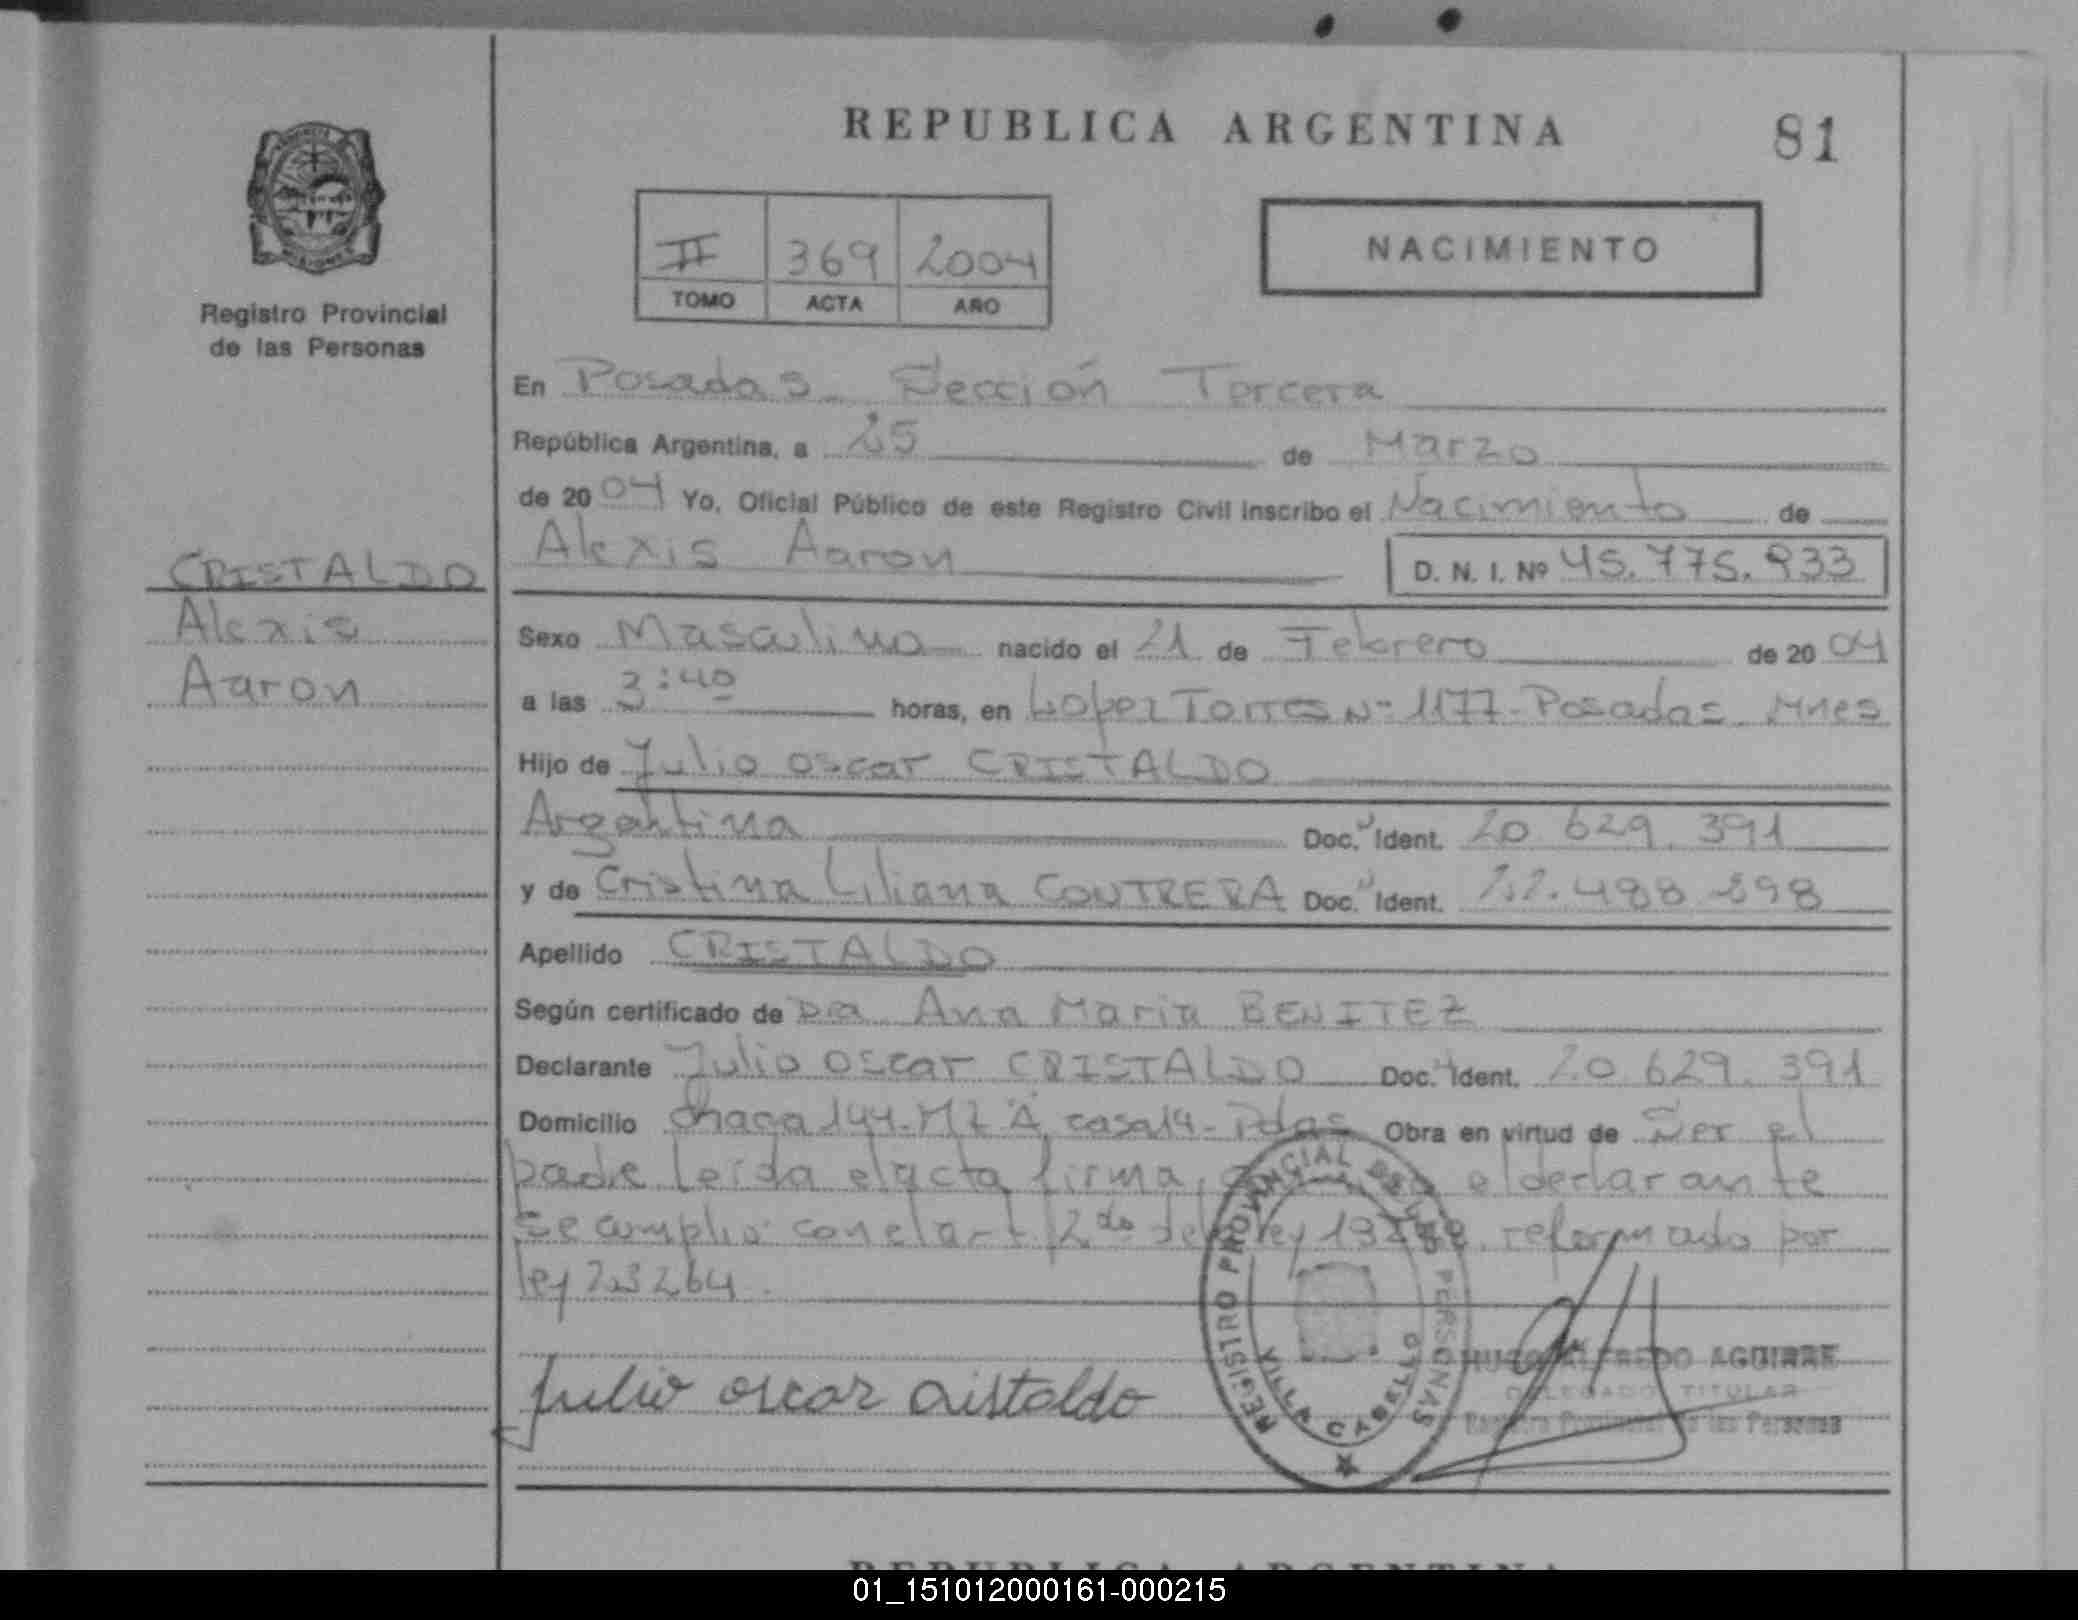 REPUBLICA ARGENTINA
81
II 369 2004
TOMO ACTA AÑO
NACIMIENTO
Registro Provincial
de las Personas
En Posadas - Sección Tercera
República Argentina, a 25 de Marzo
de 2004 Yo, Oficial Público de este Registro Civil inscribo el Nacimiento de
Alexis Aaron D. N. I. Nº 45.775.933
CRISTALDO
Alexis
Aaron
Sexo Masculino nacido el 21 de Febrero de 2004
a las 3:40 horas, en Lopez Torres Nº 1177 - Posadas Mnes
Hijo de Julio Oscar CRISTALDO
Argentina Doc. Ident. 20.629.391
y de Cristina Liliana CONTRERA Doc. Ident. 22.488.898
Apellido CRISTALDO
Según certificado de Dra Ana Maria BENITEZ
Declarante Julio Oscar CRISTALDO Doc. Ident. 20.629.391
Domicilio Chaca 144 - MZ "A" casa 14 - Pdas Obra en virtud de Ser el
padre leída el acta firma, el declarante
se cumplio con el art. 12do de ley reformado por
ley 23264.
Julio oscar cristaldo
REGISTRO PROVINCIAL DE LAS PERSONAS
VILLA CABELLO
HUGO ALFREDO AGUIRRE
DELEGADO TITULAR
Registro Provincial de las Personas
REPUBLICA ARGENTINA
01_151012000161-000215